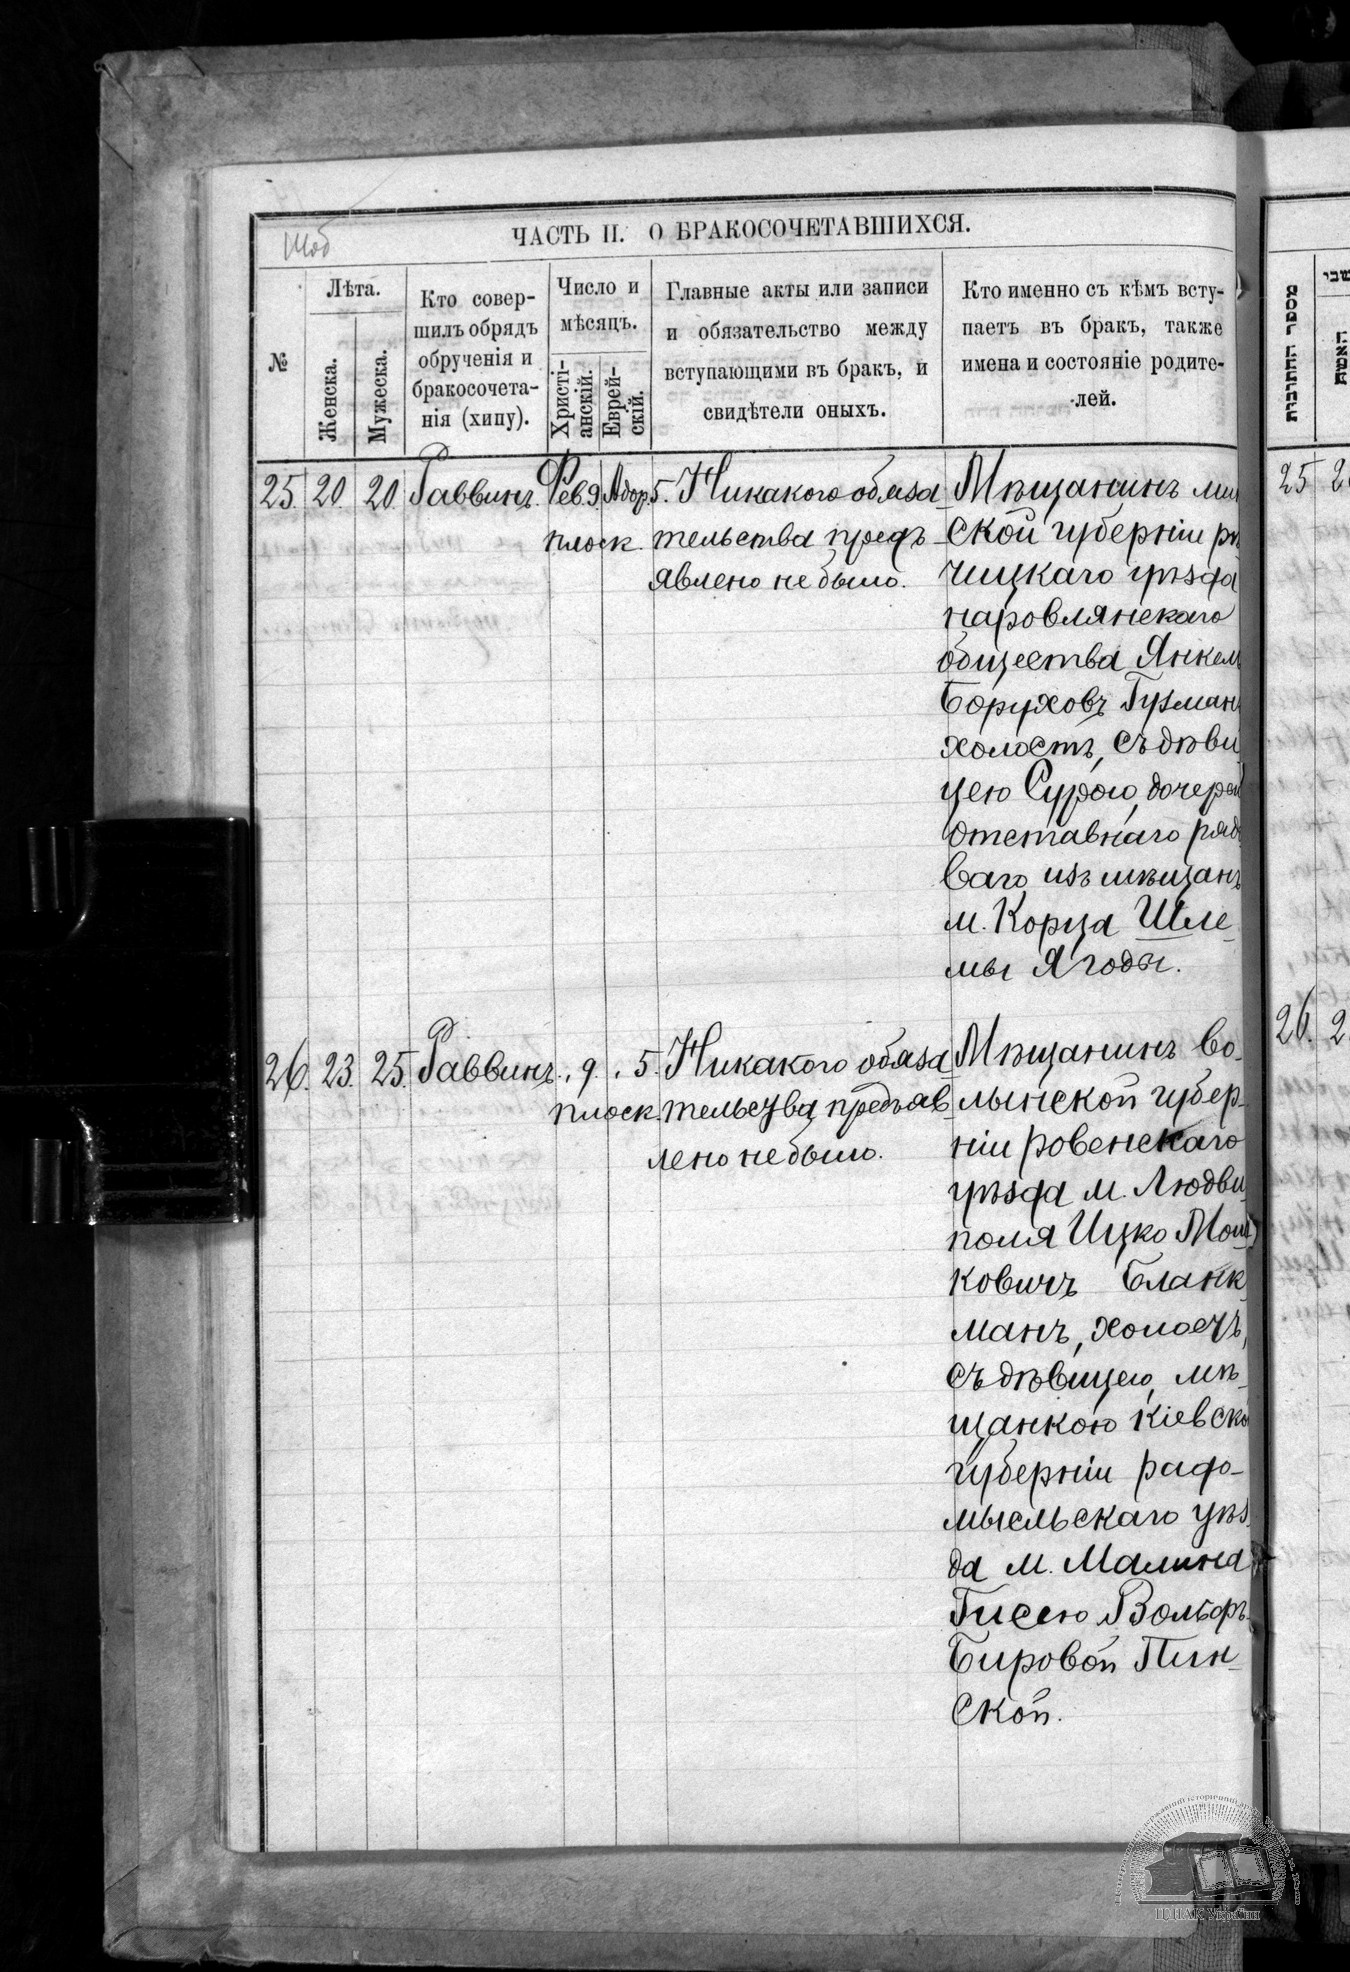 ЧАСТЬ II. О БРАКОСОЧЕТАВШИХСЯ.
№
Лѣта.
Женска.
Мужеска.
Кто совер-
шилъ обрядъ
обрученія и
бракосочета-
нія (хипу).
Число и
мѣсяцъ.
Христі-
анскій.
Еврей-
скій.
Главные акты или записи
и обязательство между
вступающими въ бракъ, и
свидѣтели оныхъ.
Кто именно съ кѣмъ всту-
паетъ въ бракъ, также
имена и состояніе родите-
лей.
25. 20. 20. Раввинъ. Фев. 9. Адар. 5. Никакого обяза
тельства предъ
явлено не было.
плоск.
Мѣщанинъ мин
ской губерніи рѣ
чицкаго уѣзда
наровлянскаго
общества Янкел
Боруховъ Гузман
холостъ, съ дѣви
цею Сурою, дочерей
отставнаго рядо
ваго изъ мѣщанъ
м. Корца Шле-
мы Ягоды.
26. 23. 25. Раввинъ. „ 9. „ 5. Никакого обяза
плоск. тельства предъяв
лено не было.
Мѣщанинъ во-
лынской губер-
ніи ровенскаго
уѣзда м. Людви
поля Ицко Мош
ковичъ Бланк
манъ, холостъ,
съ дѣвицею, мѣ-
щанкою кіевской
губерніи радо-
мысльскаго уѣз
да м. Малина
Гисею Вольфъ-
Бировой Пин-
ской.
מספר החתונות
האשה
25
26.
ЦДІАК України